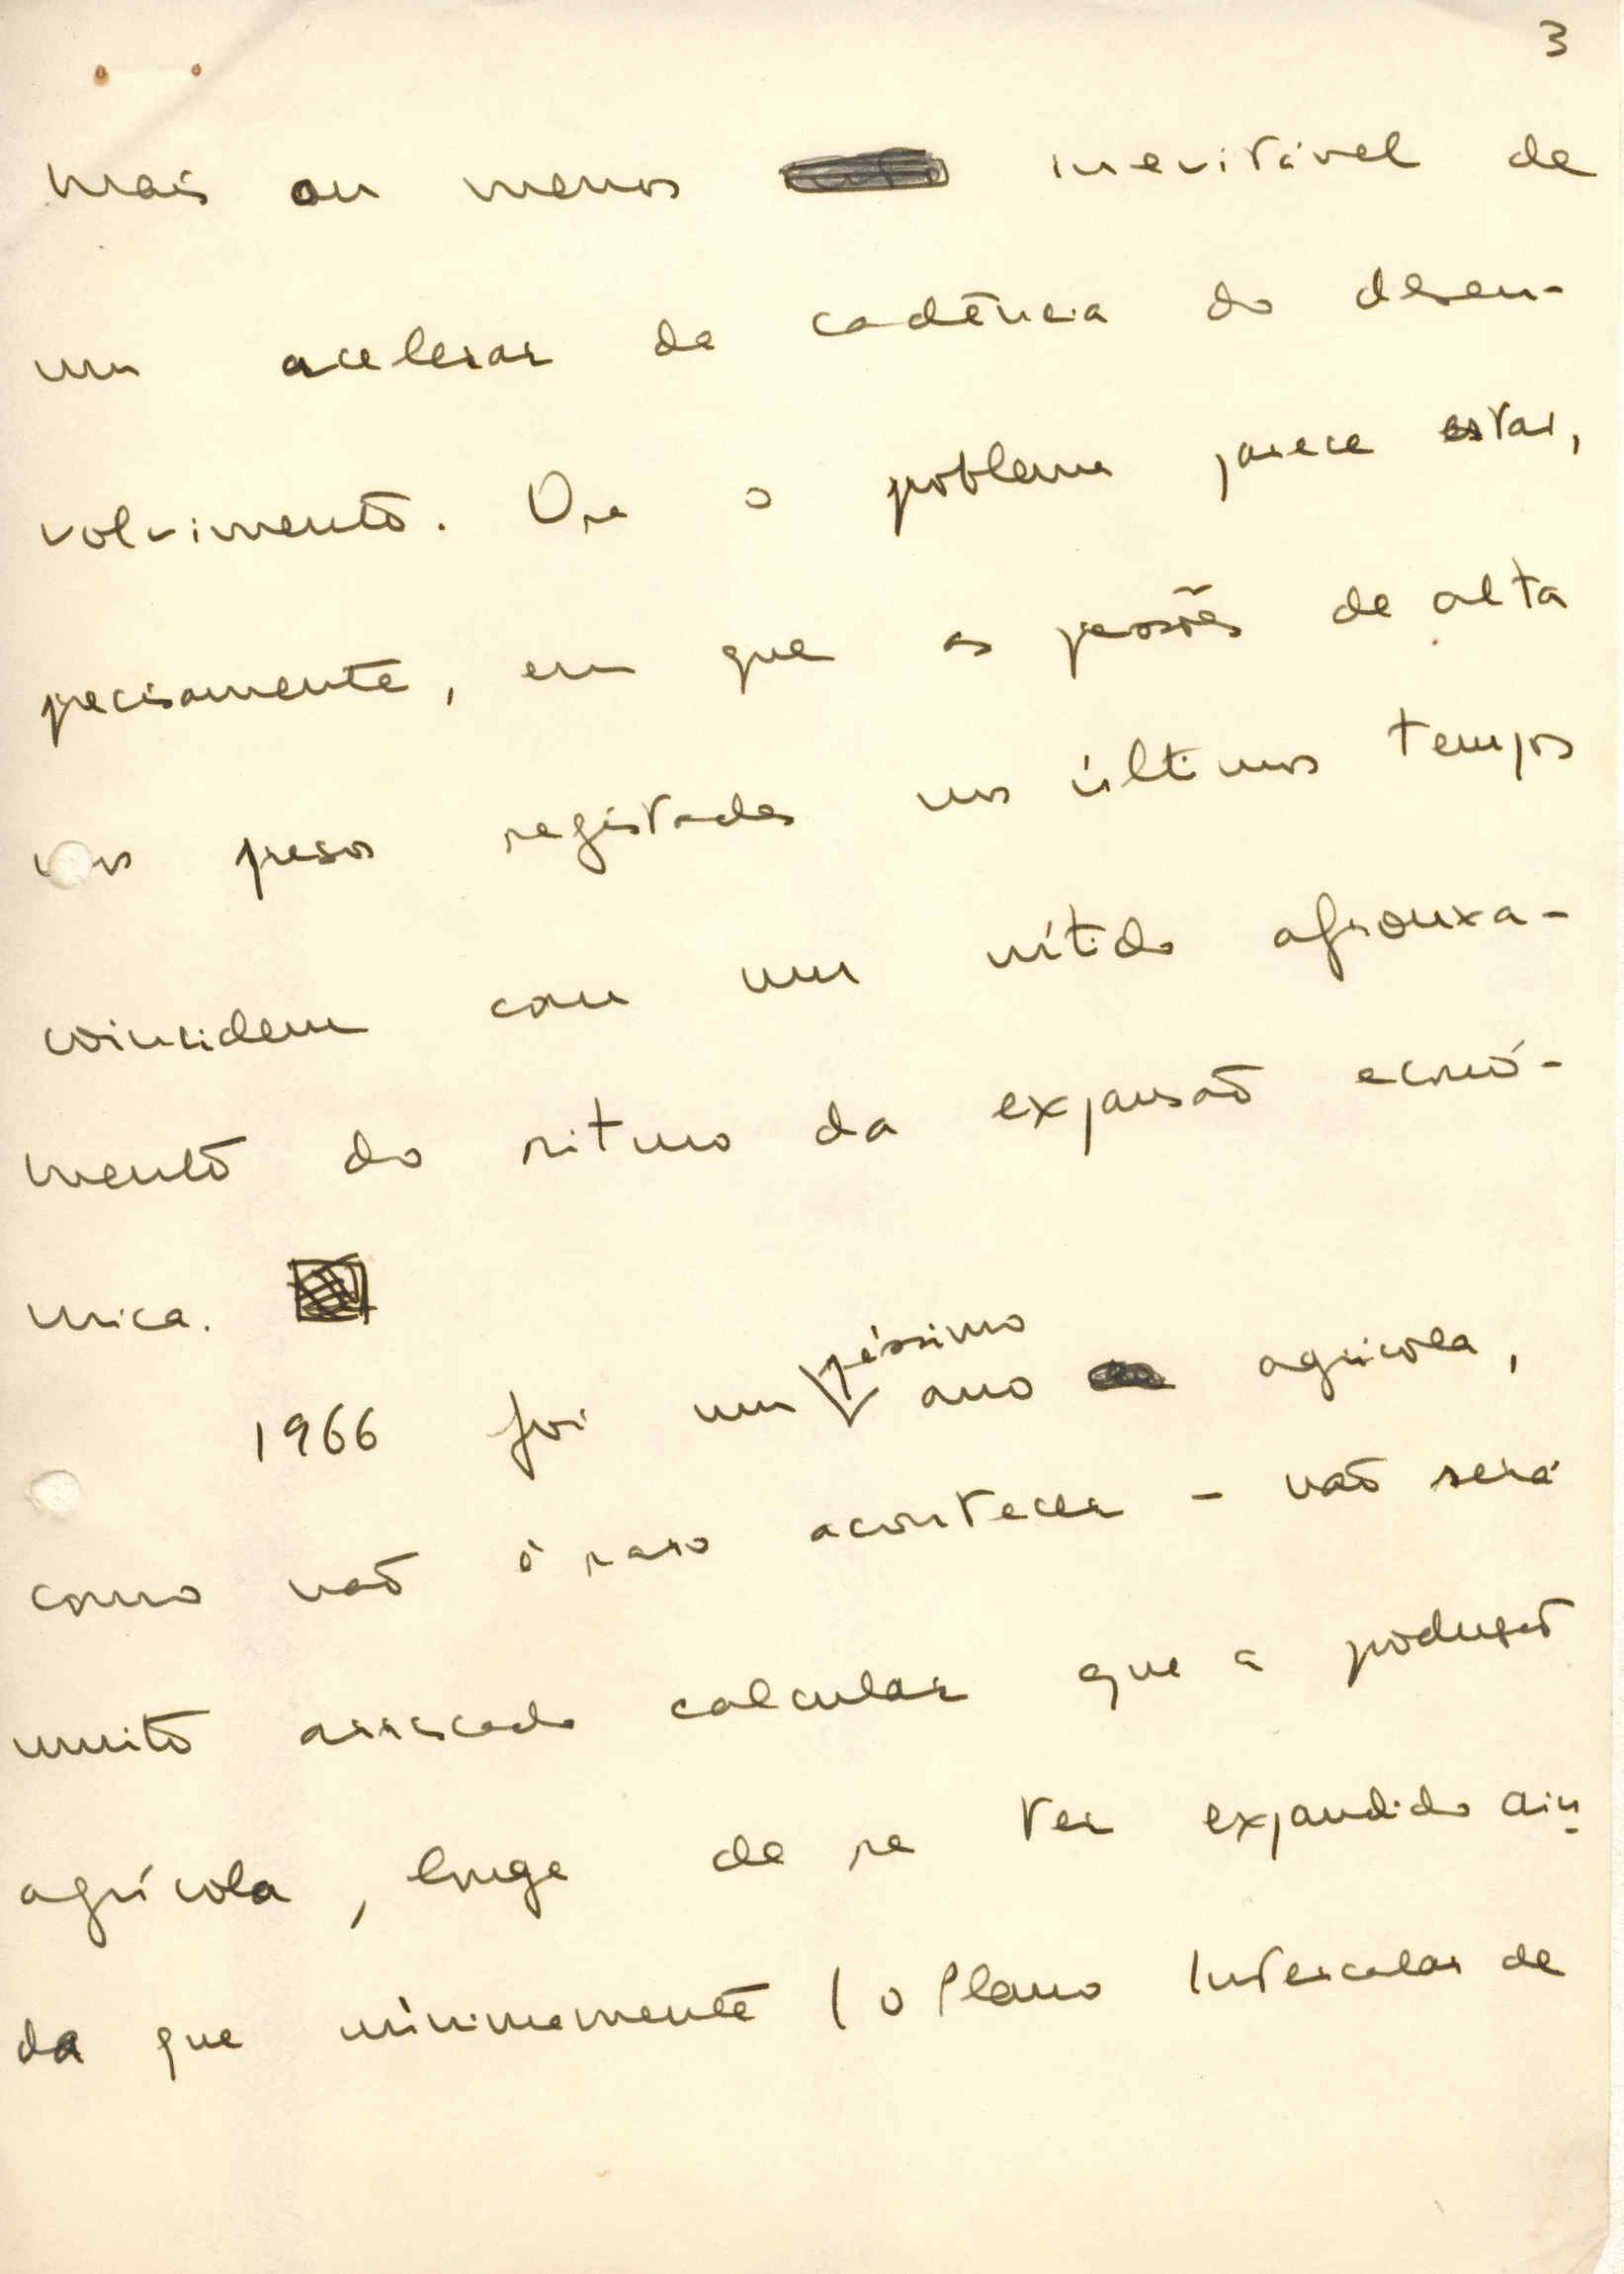 3
mais ou menos inevitável de
um acelerar da cadência do desen-
volvimento. Ora o problema parece estar,
precisamente, em que as pressões de alta
nos preços registadas nos últimos tempos
coincidem com um nítido afrouxa-
mento do ritmo da expansão econó-
mica.
péssimo
1966 foi um ano agrícola,
como não é raro acontecer – não será
muito arriscado calcular que a produção
agrícola, longe de se ter expandido ain-
da que minimamente (o Plano Intercalar de